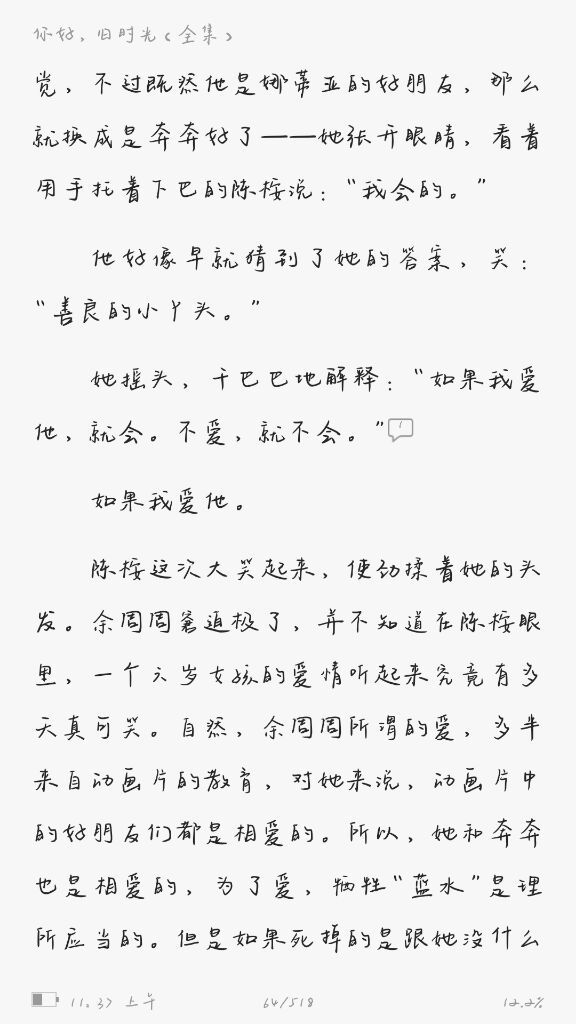 你好，旧时光（全集）
觉，不过既然他是娜蒂亚的好朋友，那么
就换成是奔奔好了——她张开眼睛，看着
用手托着下巴的陈桉说：“我会的。”
他好像早就猜到了她的答案，笑：
“善良的小丫头。”
她摇头，干巴巴地解释：“如果我爱
他，就会。不爱，就不会。”
1
如果我爱他。
陈桉这次大笑起来，使劲揉着她的头
发。余周周窘迫极了，并不知道在陈桉眼
里，一个六岁女孩的爱情听起来究竟有多
天真可笑。自然，余周周所谓的爱，多半
来自动画片的教育，对她来说，动画片中
的好朋友们都是相爱的。所以，她和奔奔
也是相爱的，为了爱，牺牲“蓝水”是理
所应当的。但是如果死掉的是跟她没什么
11.37 上午 64/518 12.2%